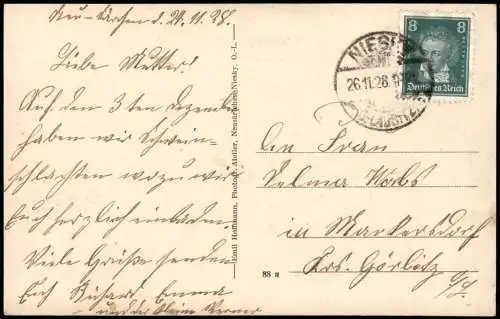 Neu-Särichen d. 24.11.28.
Liebe Mutter!
Auf den 3ten Dezember
haben wir Schwein-
schlachten wozu wir
Euch herzlich einladen
Viele Grüße senden
Euch Richard Emma
und der kleine Werner
Emil Hoffmann, Photogr. Atelier, Niesky, O.-L.
88
8
Deutsches Reich
NIESKY
26.11.28.
LAUSITZ
An Frau
Selma Wobs
in Markersdorf
Krs. Görlitz
O/L.